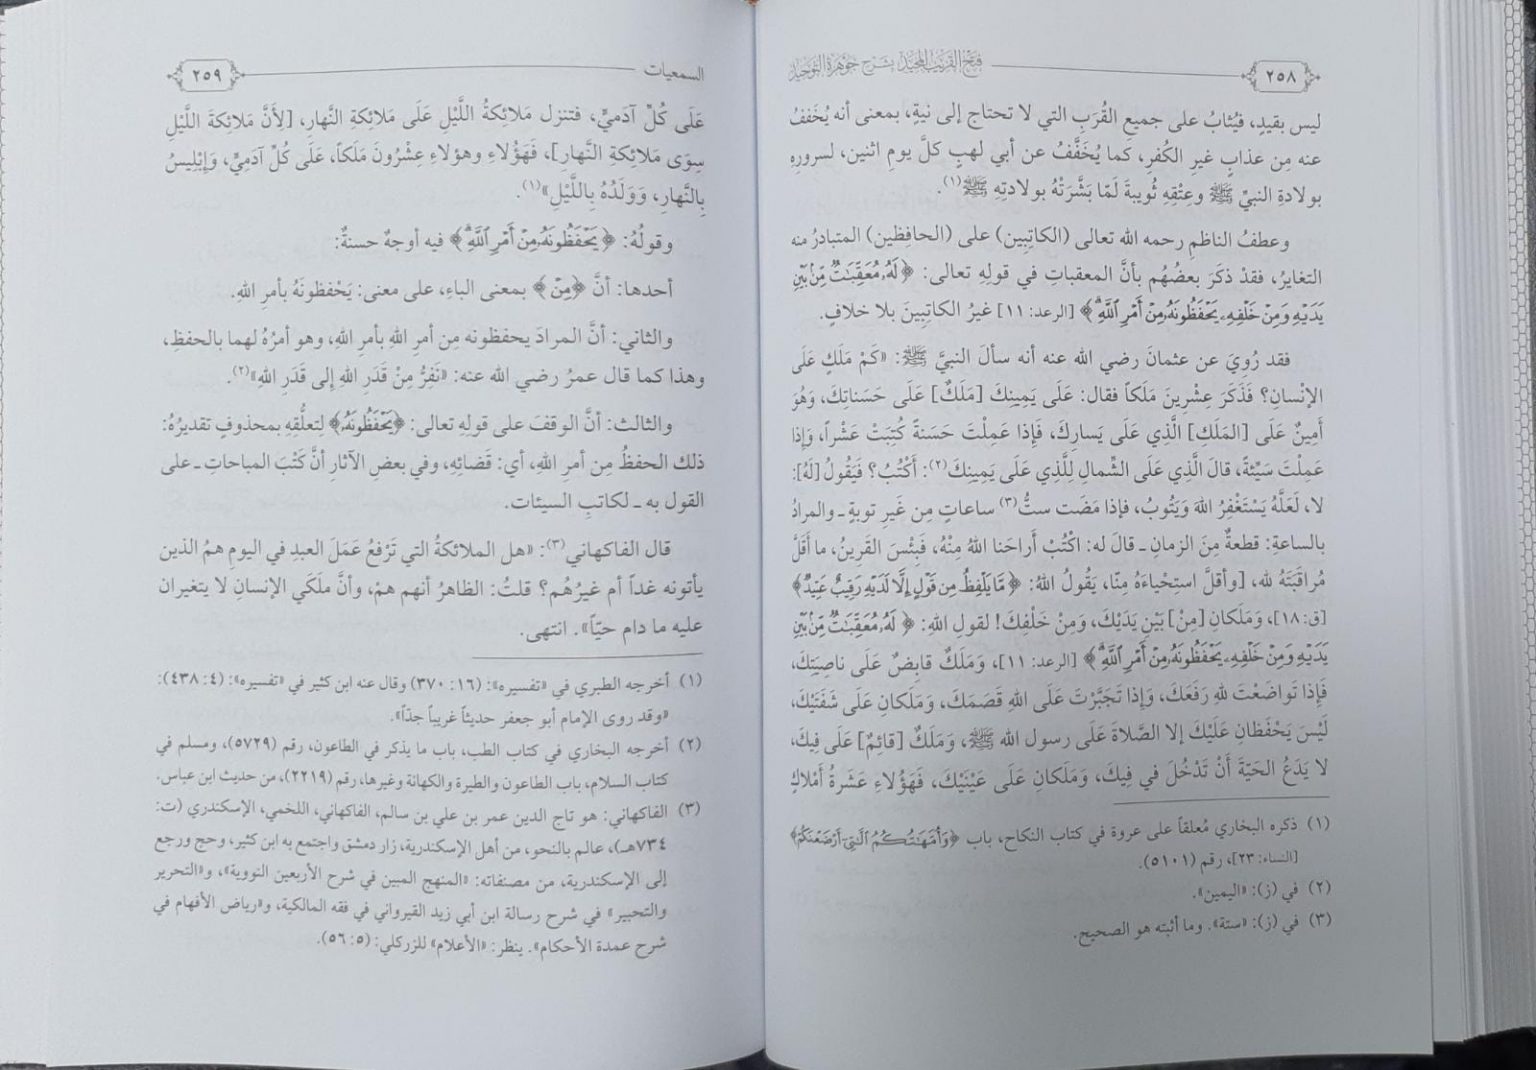 ٢٥٨
فتح القريب المجيد بشرح جوهرة التوحيد
ليس بقيدٍ، فيُثابُ على جميعِ القُرَبِ التي لا تحتاج إلى نيةٍ، بمعنى أنه يُخَففُ
عنه مِن عذابٍ غيرِ الكُفرِ، كَما يُخَفَّفُ عن أبي لهبٍ كلَّ يومِ اثنين، لسرورِهِ
بولادةِ النبيِّ ﷺ وعِتْقِهِ ثُويبةَ لَمّا بَشَّرَتْهُ بولادتِهِ ﷺ(١).
وعطفُ الناظمِ رحمه الله تعالى (الكاتِبين) على (الحافظين) المتبادرُ منه
التغايرُ، فقدْ ذكَرَ بعضُهُم بأنَّ المعقباتِ في قولِهِ تعالى: ﴿لَهُۥ مُعَقِّبَٰتٌ مِّنۢ بَيْنِ
يَدَيْهِ وَمِنْ خَلْفِهِۦ يَحْفَظُونَهُۥ مِنْ أَمْرِ ٱللَّهِ﴾ [الرعد: ١١] غيرُ الكاتِبينَ بلا خلافٍ.
فقد رُوِيَ عن عثمانَ رضي الله عنه أنه سألَ النبيَّ ﷺ: «كَمْ مَلَكٍ عَلَى
الإنْسانِ؟ فَذَكَرَ عِشْرِينَ مَلَكاً فقال: عَلَى يَمِينِكَ [مَلَكٌ] عَلَى حَسَناتِكَ، وَهُوَ
أَمِينٌ عَلَى [المَلَكِ] الَّذِي عَلَى يَسارِكَ، فَإذا عَمِلْتَ حَسَنةً كُتِبَتْ عَشْراً، وَإذا
عَمِلْتَ سَيِّئةً، قالَ الَّذِي عَلَى الشِّمالِ لِلَّذِي عَلَى يَمِينِكَ(٢): أَكْتُبُ؟ فَيَقُولُ [لَهُ]:
لا، لَعَلَّهُ يَسْتَغْفِرُ اللهَ وَيَتُوبُ، فإذا مَضَت ستُّ(٣) ساعاتٍ مِن غَيرِ توبةٍ ـ والمرادُ
بالساعةِ: قطعةٌ مِنَ الزمانِ ـ قالَ له: اكْتُبْ أراحَنا اللهُ مِنْهُ، فَبِئْسَ القَرِينُ، ما أقَلَّ
مُراقَبَتَهُ لله، [وأقلَّ استِحْياءَهُ مِنّا، يَقُولُ اللهُ: ﴿مَّا يَلْفِظُ مِن قَوْلٍ إِلَّا لَدَيْهِ رَقِيبٌ عَتِيدٌ﴾
[ق: ١٨]، وَمَلَكانِ [مِنْ] بَيْنِ يَدَيْكَ، وَمِنْ خَلْفِكَ! لقولِ اللهِ: ﴿لَهُۥ مُعَقِّبَٰتٌ مِّنۢ بَيْنِ
يَدَيْهِ وَمِنْ خَلْفِهِۦ يَحْفَظُونَهُۥ مِنْ أَمْرِ ٱللَّهِ﴾ [الرعد: ١١]، وَمَلَكٌ قابِضٌ عَلَى ناصِيَتِكَ،
فَإذا تَواضَعْتَ للهِ رَفَعَكَ، وَإذا تَجَبَّرْتَ عَلَى اللهِ قَصَمَكَ، وَمَلَكانِ عَلَى شَفَتَيْكَ،
لَيْسَ يَحْفَظانِ عَلَيْكَ إلا الصَّلاةَ عَلَى رسول الله ﷺ، وَمَلَكٌ [قائِمٌ] عَلَى فِيكَ،
لا يَدَعُ الحَيّةَ أَنْ تَدْخُلَ في فِيكَ، وَمَلَكانِ عَلَى عَيْنَيْكَ، فَهَؤُلاءِ عَشَرةُ أَمْلاكٍ
(١) ذكره البخاري مُعلقاً على عروة في كتاب النكاح، باب ﴿وَأُمَّهَٰتُكُمُ ٱلَّٰتِىٓ أَرْضَعْنَكُمْ﴾
[النساء: ٢٣]، رقم (٥١٠١).
(٢) في (ز): «اليمين».
(٣) في (ز): «ستة». وما أثبته هو الصحيح.
السمعيات
٢٥٩
عَلَى كُلِّ آدَميٍّ، فتنزل مَلائِكةُ اللَّيْلِ عَلَى مَلائِكةِ النَّهارِ، [لِأَنَّ مَلائِكةَ اللَّيْلِ
سِوَى مَلائِكةِ النَّهارِ]، فَهَؤُلاءِ وهؤلاءِ عِشْرُونَ مَلَكاً، عَلَى كُلِّ آدَمِيٍّ، وَإبْلِيسُ
بِالنَّهارِ، وَوَلَدُهُ بِاللَّيْلِ»(١).
وقولُهُ: ﴿يَحْفَظُونَهُۥ مِنْ أَمْرِ ٱللَّهِ﴾ فيه أوجهٌ حسنةٌ:
أحدها: أنَّ ﴿مِنْ﴾ بمعنى الباءِ، على معنى: يَحْفظونَهُ بأمرِ اللهِ.
والثاني: أنَّ المرادَ يحفظونه مِن أمرِ اللهِ بأمرِ اللهِ، وهو أمرُهُ لهما بالحفظِ،
وهذا كما قال عمرُ رضي الله عنه: «نَفِرُّ مِنْ قَدَرِ اللهِ إلى قَدَرِ اللهِ»(٢).
والثالث: أنَّ الوقفَ على قولِهِ تعالى: ﴿يَحْفَظُونَهُۥ﴾ لِتعلُّقِهِ بمحذوفٍ تقديرُهُ:
ذلك الحفظُ مِن أمرِ اللهِ، أي: قَضائِهِ، وفي بعضِ الآثارِ أنَّ كَتْبَ المباحاتِ ـ على
القول به ـ لكاتبِ السيئات.
قال الفاكهاني(٣): «هل الملائكةُ التي تَرْفعُ عَمَلَ العبدِ في اليومِ همُ الذين
يأتونه غداً أم غيرُهُم؟ قلتُ: الظاهرُ أنهم همْ، وأنَّ ملَكَي الإنسانِ لا يتغيران
عليه ما دام حيّاً». انتهى.
(١) أخرجه الطبري في «تفسيره»: (١٦: ٣٧٠) وقال عنه ابن كثير في «تفسيره»: (٤: ٤٣٨):
«وقد روى الإمام أبو جعفر حديثاً غريباً جدّاً».
(٢) أخرجه البخاري في كتاب الطب، باب ما يذكر في الطاعون، رقم (٥٧٢٩)، ومسلم في
كتاب السلام، باب الطاعون والطيرة والكهانة وغيرها، رقم (٢٢١٩)، من حديث ابن عباس.
(٣) الفاكهاني: هو تاج الدين عمر بن علي بن سالم، الفاكهاني، اللخمي، الإسكندري (ت:
٧٣٤هـ)، عالم بالنحو، من أهل الإسكندرية، زار دمشق واجتمع به ابن كثير، وحج ورجع
إلى الإسكندرية، من مصنفاته: «المنهج المبين في شرح الأربعين النووية»، و«التحرير
والتحبير» في شرح رسالة ابن أبي زيد القيرواني في فقه المالكية، و«رياض الأفهام في
شرح عمدة الأحكام». ينظر: «الأعلام» للزركلي: (٥: ٥٦).